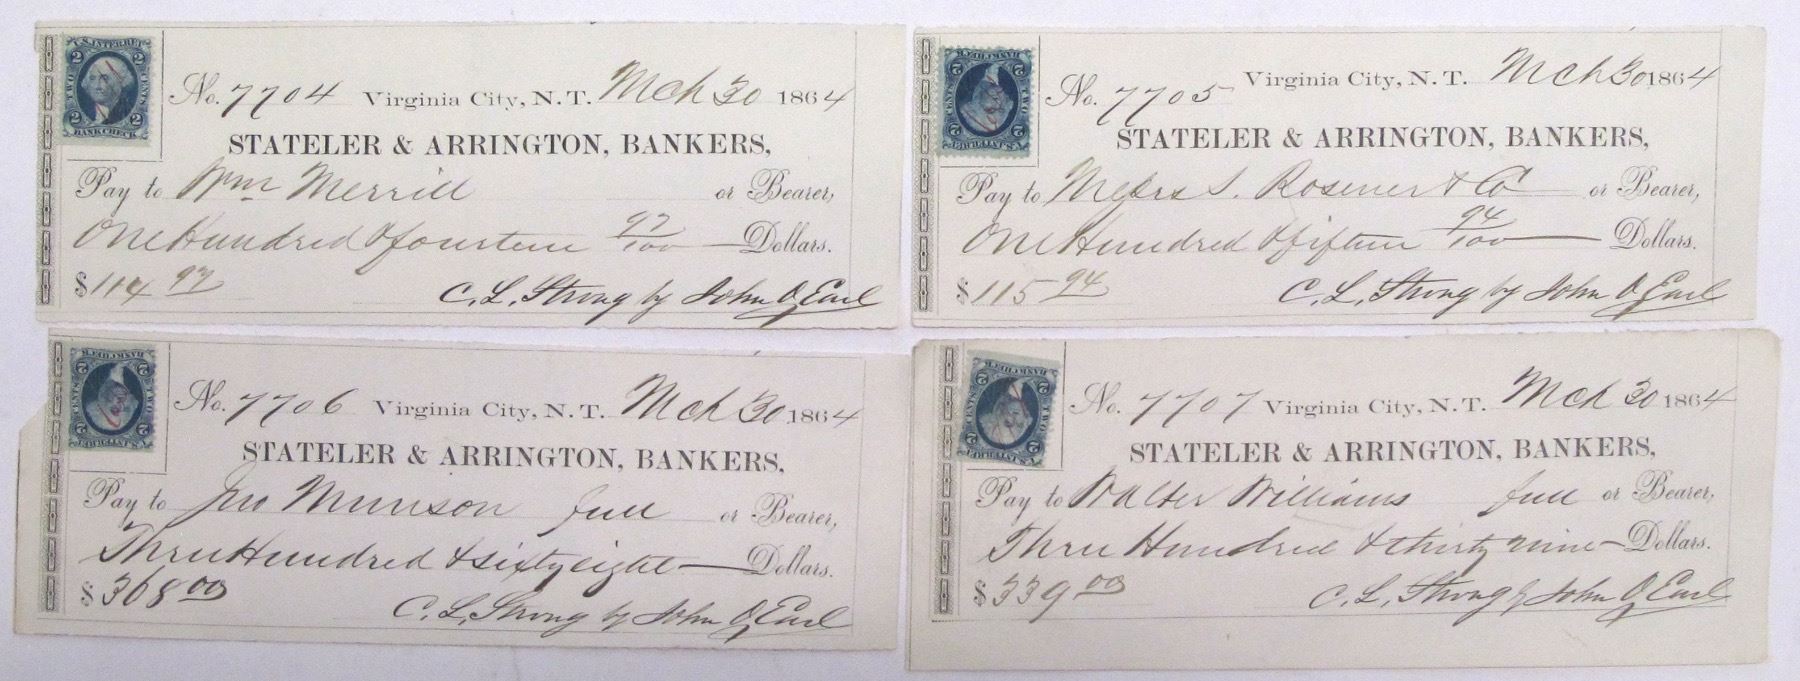 U.S. INTER. REV.
2 2
TWO CENTS
2 2
BANK CHECK
No. 7704 Virginia City, N.T. Mch 30 1864
STATELER & ARRINGTON, BANKERS,
Pay to Wm Merrill or Bearer,
One Hundred & fourteen 97/100 Dollars.
$114 97
C. L. Strong by John O. Earl
U.S. INTER. REV.
2 2
TWO CENTS
2 2
BANK CHECK
No. 7705 Virginia City, N.T. Mch 30 1864
STATELER & ARRINGTON, BANKERS,
Pay to Messrs S. Rosener & Co or Bearer,
One Hundred & fifteen 94/100 Dollars.
$115 94
C. L. Strong by John O. Earl
U.S. INTER. REV.
2 2
TWO CENTS
2 2
BANK CHECK
No. 7706 Virginia City, N.T. Mch 30 1864
STATELER & ARRINGTON, BANKERS,
Pay to Jno Munson full or Bearer,
Three Hundred & sixty eight Dollars.
$368 00
C. L. Strong by John O. Earl
U.S. INTER. REV.
2 2
TWO CENTS
2 2
BANK CHECK
No. 7707 Virginia City, N.T. Mch 30 1864
STATELER & ARRINGTON, BANKERS,
Pay to Walter Williams full or Bearer,
Three Hundred & thirty nine Dollars.
$339 00
C. L. Strong by John O. Earl